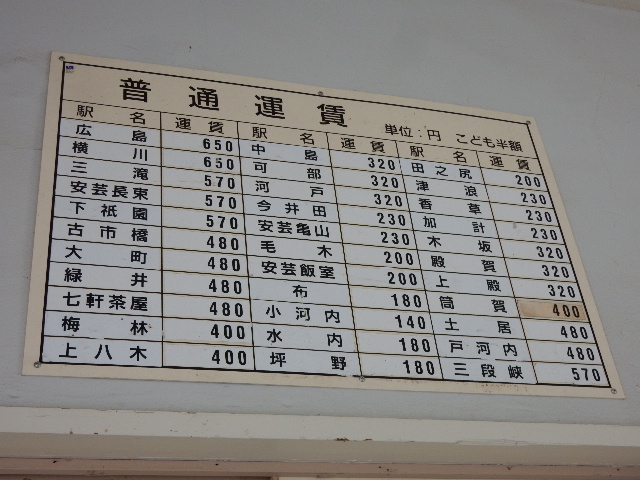 普通運賃
単位：円 こども半額
駅名 運賃 駅名 運賃 駅名 運賃
広島 650 中島 320 田之尻 200
横川 650 可部 320 津浪 230
三滝 570 河戸 320 香草 230
安芸長束 570 今井田 230 加計 230
下祇園 570 安芸亀山 230 木坂 320
古市橋 480 毛木 200 殿賀 320
大町 480 安芸飯室 200 上殿 320
緑井 480 布 180 筒賀 400
七軒茶屋 480 小河内 140 土居 480
梅林 400 水内 180 戸河内 480
上八木 400 坪野 180 三段峡 570